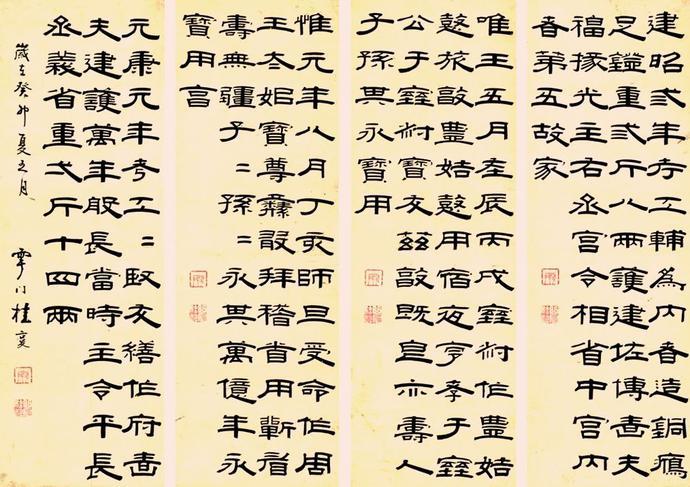 建昭弎年考工輔為內者造銅鴈
足鐙重弎斤八兩護建佐博嗇夫
福掾光主右丞宮令相省中宮內
者第五故家
唯王五月在辰丙戌室叔作豐姞
憝旅敦豐姞憝用宿夜享孝于室
公于室叔寶友茲敦既皀亦壽人
子孫其永寶用
惟元年八月丁亥師旦受命作周
王太姒寶尊彝敢拜稽首用蘄眉
壽無疆子二孫二永其萬億年永
寶用亯
元康元年考工二賢友繕作府嗇
夫建護萬年般長當時主令平長
丞義省重弍斤十四兩
歲在癸卯夏之月 雩門桂馥